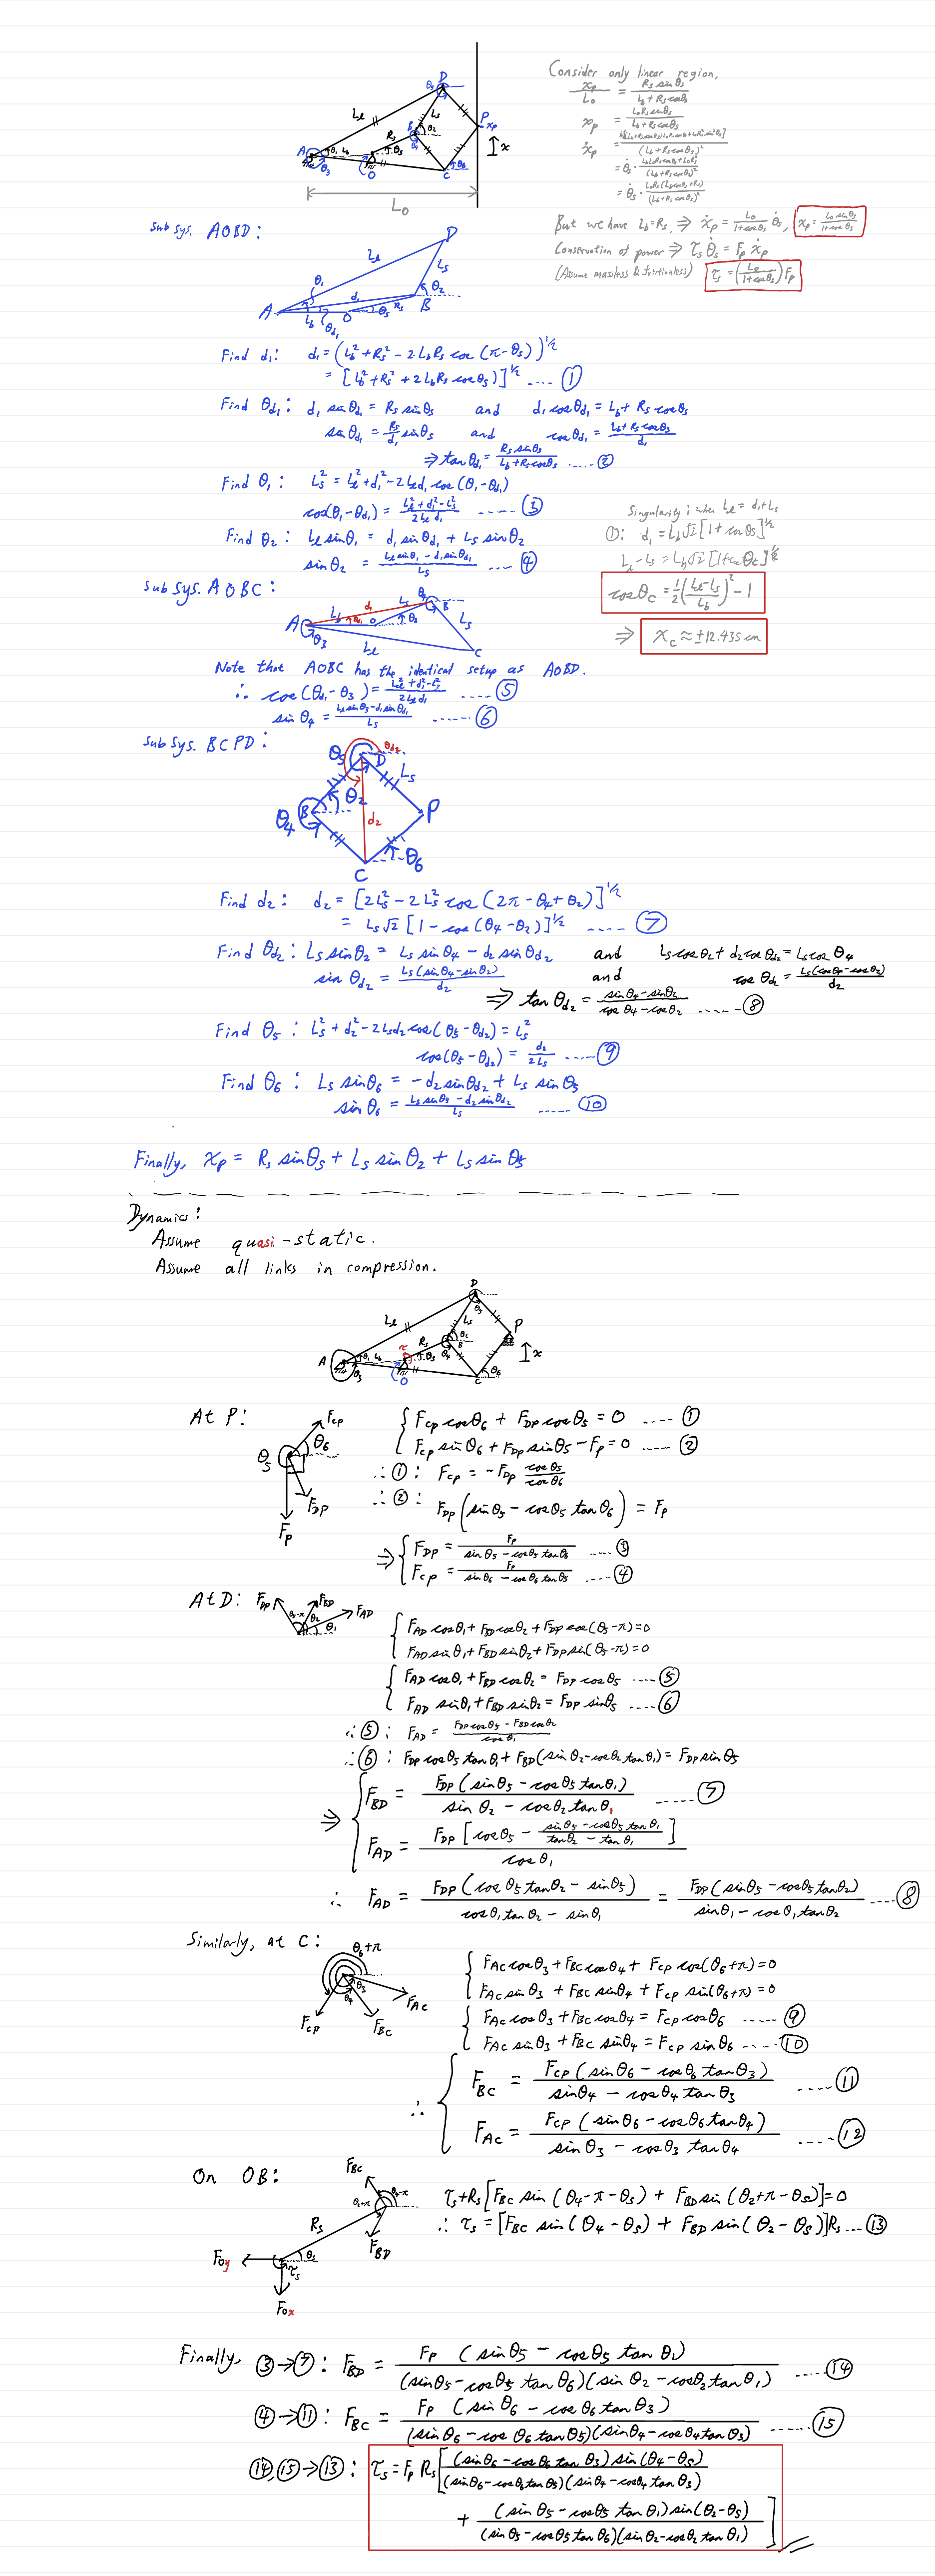 Consider only linear region,
x_p / L_0 = R_s sinθ_s / (L_b + R_s cosθ_s)
x_p = L_0 R_s sinθ_s / (L_b + R_s cosθ_s)
= θ̇_s · L_0 R_s (L_b cosθ_s + R_s) / (L_b + R_s cosθ_s)²
But we have L_b = R_s ⇒ ẋ_p = L_0 / (1+cosθ_s) θ̇_s, x_p = L_0 sinθ_s / (1+cosθ_s)
Conservation of power ⇒ τ_s θ̇_s = F_p ẋ_p
(Assume massless & frictionless) τ_s = (L_0 / (1+cosθ_s)) F_p
A O B C D P
L_l L_s R_s L_b x_p x
L_0
Sub Sys. AOBD:
A O B D
L_l L_s d_1 L_b R_s θ_1 θ_2 θ_s θ_d1
Find d_1: d_1 = (L_b² + R_s² - 2L_b R_s cos(π-θ_s))^1/2
= [L_b² + R_s² + 2L_b R_s cosθ_s)]^1/2 .... ①
Find θ_d1: d_1 sinθ_d1 = R_s sinθ_s and d_1 cosθ_d1 = L_b + R_s cosθ_s
sinθ_d1 = R_s/d_1 sinθ_s and cosθ_d1 = (L_b + R_s cosθ_s)/d_1
⇒ tanθ_d1 = R_s sinθ_s / (L_b + R_s cosθ_s) ...... ②
Find θ_1: L_s² = L_l² + d_1² - 2L_l d_1 cos(θ_1-θ_d1)
cos(θ_1-θ_d1) = (L_l² + d_1² - L_s²) / 2L_l d_1 ..... ③
Find θ_2: L_l sinθ_1 = d_1 sinθ_d1 + L_s sinθ_2
sinθ_2 = (L_l sinθ_1 - d_1 sinθ_d1) / L_s .... ④
Singularity: when L_l = d_1 + L_s
①: d_1 = L_b√2 [1+cosθ_s]^1/2
L_l - L_s = L_b√2 [1+cosθ_c]^1/2
cosθ_c = 1/2 ((L_l - L_s)/L_b)² - 1
⇒ x_c ≈ ±12.435 cm
Sub Sys. AOBC:
A O B C
L_b d_1 L_s L_s L_l θ_3 θ_s θ_4
Note that AOBC has the identical setup as AOBD.
∴ cos(θ_d1 - θ_3) = (L_l² + d_1² - L_s²) / 2L_l d_1 ..... ⑤
sinθ_4 = (L_l sinθ_3 - d_1 sinθ_d1) / L_s ...... ⑥
Sub Sys. BCPD:
B C P D
θ_5 θ_d2 L_s θ_2 θ_4 d_2 θ_6
Find d_2: d_2 = [2L_s² - 2L_s² cos(2π - θ_4 + θ_2)]^1/2
= L_s√2 [1 - cos(θ_4-θ_2)]^1/2 ..... ⑦
Find θ_d2: L_s sinθ_2 = L_s sinθ_4 - d_2 sinθ_d2 and L_s cosθ_2 + d_2 cosθ_d2 = L_s cosθ_4
sinθ_d2 = L_s(sinθ_4 - sinθ_2)/d_2 and cosθ_d2 = L_s(cosθ_4 - cosθ_2)/d_2
⇒ tanθ_d2 = (sinθ_4 - sinθ_2) / (cosθ_4 - cosθ_2) ...... ⑧
Find θ_5: L_s² + d_2² - 2L_s d_2 cos(θ_5-θ_d2) = L_s²
cos(θ_5-θ_d2) = d_2 / 2L_s ..... ⑨
Find θ_6: L_s sinθ_6 = -d_2 sinθ_d2 + L_s sinθ_5
sinθ_6 = (L_s sinθ_5 - d_2 sinθ_d2) / L_s ..... ⑩
Finally, x_p = R_s sinθ_s + L_s sinθ_2 + L_s sinθ_5
Dynamics:
Assume quasi-static.
Assume all links in compression.
A O B C D P
L_l L_s R_s L_b τ x
At P:
F_CP θ_6 θ_5 F_DP F_P
F_CP cosθ_6 + F_DP cosθ_5 = 0 .... ①
F_CP sinθ_6 + F_DP sinθ_5 - F_P = 0 .... ②
∴ ①: F_CP = -F_DP cosθ_5 / cosθ_6
∴ ②: F_DP (sinθ_5 - cosθ_5 tanθ_6) = F_P
⇒ F_DP = F_P / (sinθ_5 - cosθ_5 tanθ_6) ..... ③
F_CP = F_P / (sinθ_6 - cosθ_6 tanθ_5) ..... ④
At D:
F_DP F_BD F_AD θ_5-π θ_2 θ_1
F_AD cosθ_1 + F_BD cosθ_2 + F_DP cos(θ_5-π) = 0
F_AD sinθ_1 + F_BD sinθ_2 + F_DP sin(θ_5-π) = 0
F_AD cosθ_1 + F_BD cosθ_2 = F_DP cosθ_5 ..... ⑤
F_AD sinθ_1 + F_BD sinθ_2 = F_DP sinθ_5 ..... ⑥
∴ ⑤: F_AD = (F_DP cosθ_5 - F_BD cosθ_2) / cosθ_1
∴ ⑥: F_DP cosθ_5 tanθ_1 + F_BD (sinθ_2 - cosθ_2 tanθ_1) = F_DP sinθ_5
⇒ F_BD = F_DP (sinθ_5 - cosθ_5 tanθ_1) / (sinθ_2 - cosθ_2 tanθ_1) ..... ⑦
F_AD = F_DP [cosθ_5 - (sinθ_5 - cosθ_5 tanθ_1)/(tanθ_2 - tanθ_1)] / cosθ_1
∴ F_AD = F_DP (cosθ_5 tanθ_2 - sinθ_5) / (cosθ_1 tanθ_2 - sinθ_1) = F_DP (sinθ_5 - cosθ_5 tanθ_2) / (sinθ_1 - cosθ_1 tanθ_2) .... ⑧
Similarly, at C:
θ_6+π θ_3 θ_4 F_AC F_CP F_BC
F_AC cosθ_3 + F_BC cosθ_4 + F_CP cos(θ_6+π) = 0
F_AC sinθ_3 + F_BC sinθ_4 + F_CP sin(θ_6+π) = 0
F_AC cosθ_3 + F_BC cosθ_4 = F_CP cosθ_6 ..... ⑨
F_AC sinθ_3 + F_BC sinθ_4 = F_CP sinθ_6 ..... ⑩
∴ F_BC = F_CP (sinθ_6 - cosθ_6 tanθ_3) / (sinθ_4 - cosθ_4 tanθ_3) .... ⑪
F_AC = F_CP (sinθ_6 - cosθ_6 tanθ_4) / (sinθ_3 - cosθ_3 tanθ_4) .... ⑫
On OB:
F_BC θ_4-π θ_2+π R_s F_BD θ_s τ_s F_Oy F_Ox
τ_s + R_s [F_BC sin(θ_4-π-θ_s) + F_BD sin(θ_2+π-θ_s)] = 0
∴ τ_s = [F_BC sin(θ_4-θ_s) + F_BD sin(θ_2-θ_s)] R_s ... ⑬
Finally, ③→⑦: F_BD = F_P (sinθ_5 - cosθ_5 tanθ_1) / (sinθ_5 - cosθ_5 tanθ_6)(sinθ_2 - cosθ_2 tanθ_1) ..... ⑭
④→⑪: F_BC = F_P (sinθ_6 - cosθ_6 tanθ_3) / (sinθ_6 - cosθ_6 tanθ_5)(sinθ_4 - cosθ_4 tanθ_3) ..... ⑮
⑭,⑮→⑬: τ_s = F_P R_s [(sinθ_6 - cosθ_6 tanθ_3) sin(θ_4-θ_s) / (sinθ_6 - cosθ_6 tanθ_5)(sinθ_4 - cosθ_4 tanθ_3)
+ (sinθ_5 - cosθ_5 tanθ_1) sin(θ_2-θ_s) / (sinθ_5 - cosθ_5 tanθ_6)(sinθ_2 - cosθ_2 tanθ_1)]